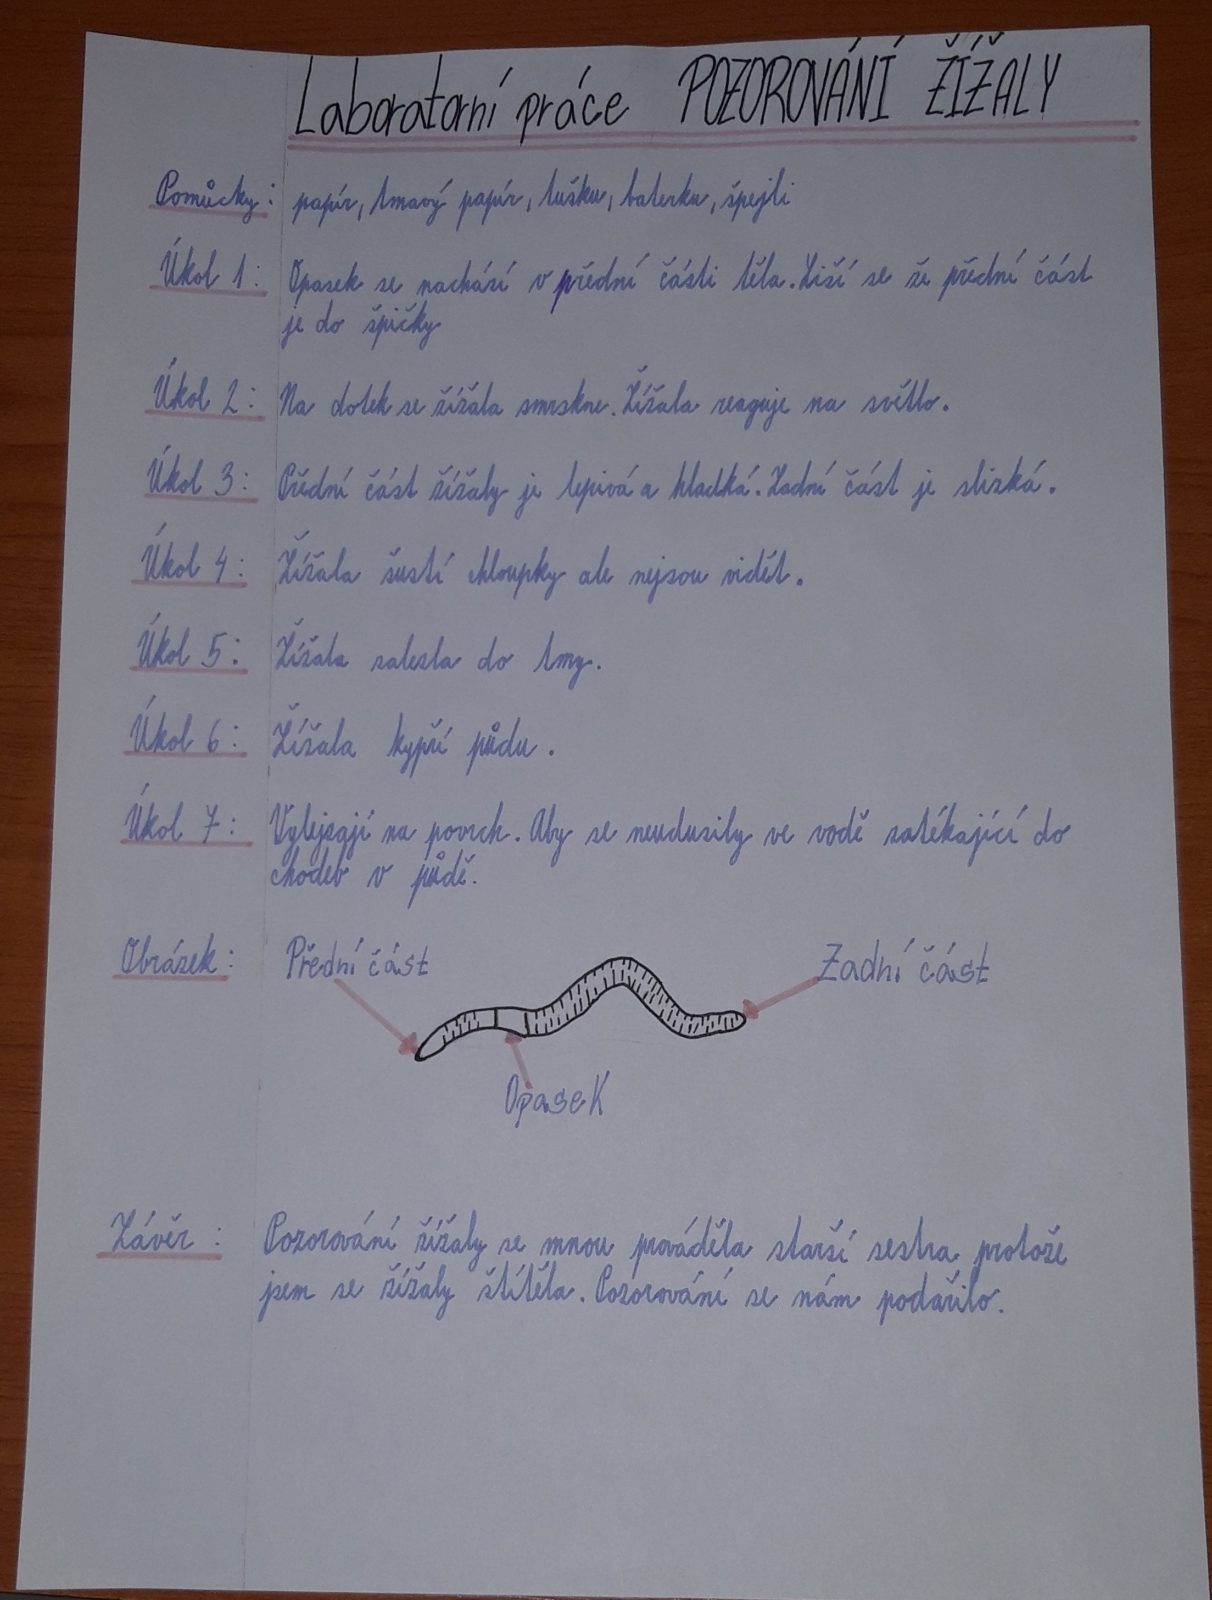 Laboratorní práce POZOROVÁNÍ ŽÍŽALY
Pomůcky: papír, tmavý papír, tušku, baterku, špejli
Úkol 1: Opasek se nachází v přední části těla. Liší se že přední část
je do špičky
Úkol 2: Na dotek se žížala smrskne. Žížala reaguje na světlo.
Úkol 3: Přední část žížaly je lepivá a hladká. Zadní část je slizká.
Úkol 4: Žížala šustí chloupky ale nejsou vidět.
Úkol 5: Žížala zalezla do tmy.
Úkol 6: Žížala kypří půdu.
Úkol 7: Vylejzají na povrch. Aby se neudusily ve vodě zatékající do
chodeb v půdě.
Obrázek: Přední část Zadní část
Opasek
Závěr: Pozorování žížaly se mnou prováděla starší sestra protože
jsem se žížaly štítěla. Pozorování se nám podařilo.